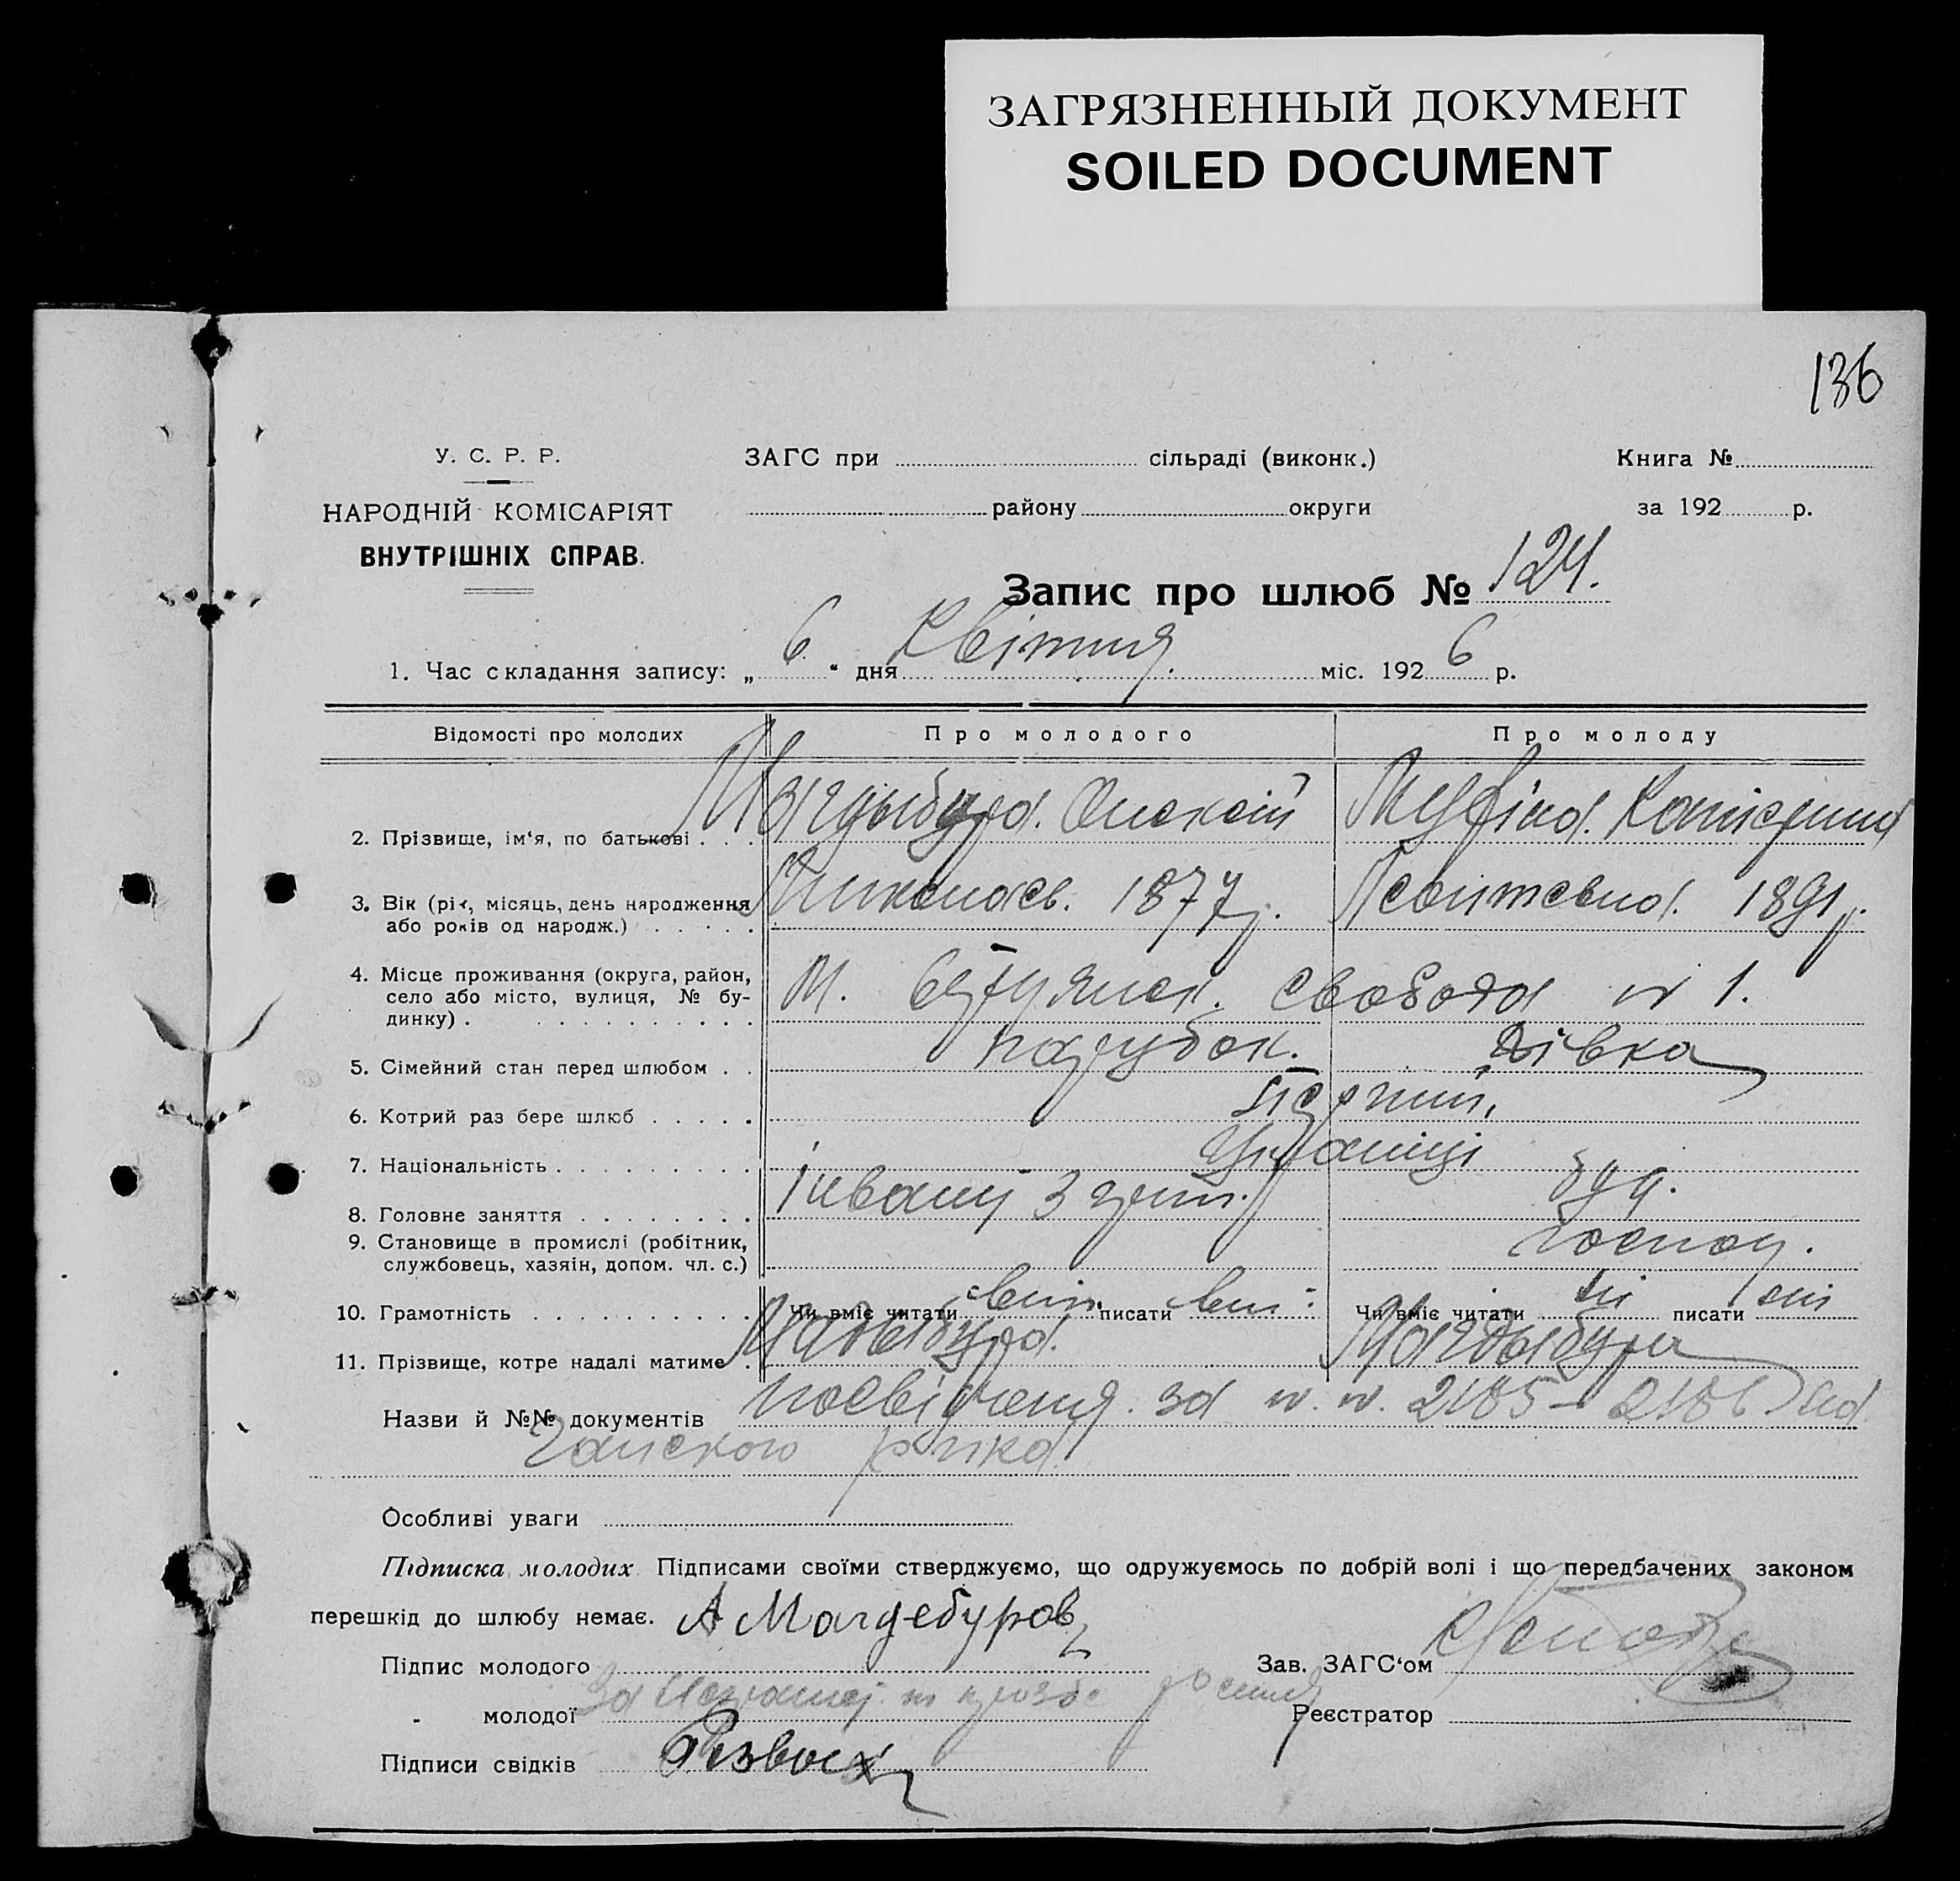 ЗАГРЯЗНЕННЫЙ ДОКУМЕНТ
SOILED DOCUMENT
136
У. С. Р. Р.
НАРОДНІЙ КОМІСАРІЯТ
ВНУТРІШНІХ СПРАВ.
ЗАГС при сільраді (виконк.)
району округи
Книга №
за 192 р.
Запис про шлюб № 124.
1. Час складання запису: „ 6 “ дня Квітня міс. 192 6 р.
Відомості про молодих Про молодого Про молоду
2. Прізвище, ім‘я, по батькові Олексій
3. Вік (рік, місяць, день народження або років од народж.) Миколаєв. 1877 р. Леонтєвна. 1891 р.
4. Місце проживання (округа, район, село або місто, вулиця, № будинку) М. Свобода № 1.
5. Сімейний стан перед шлюбом парубок. дівка
6. Котрий раз бере шлюб перший,
7. Національність Українці
8. Головне заняття інвалід 3 груп. дом.
9. Становище в промислі (робітник, службовець, хазяін, допом. чл. с.) господ.
10. Грамотність Чи вміє читати вміє писати вміє Чи вміє читати ні писати ні
11. Прізвище, котре надалі матиме Магдыбура Магдыбура
Назви й №№ документів посвідченя за №. №. 2185 – 2186
Особливі уваги
Підписка молодих Підписами своїми стверджуємо, що одружуємось по добрій волі і що передбачених законом
перешкід до шлюбу немає. А Магдебуров
Підпис молодого
Зав. ЗАГС‘ом
„ молодої
Реєстратор
Підписи свідків